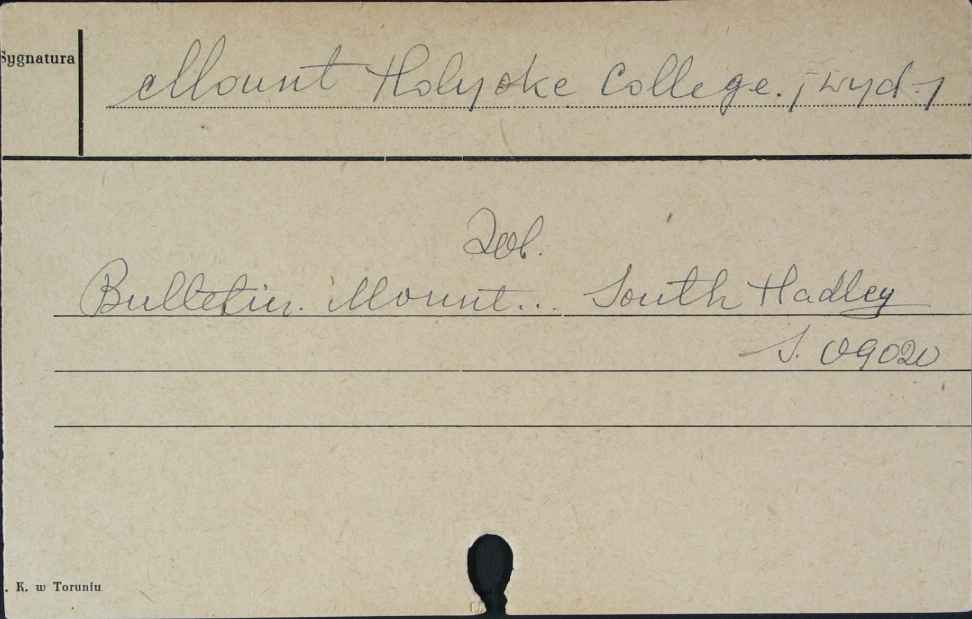 Sygnatura
Mount Holyoke College. [wyd.]
Zob.
Bulletin. Mount... South Hadley
S. 09020
. K. w Toruniu